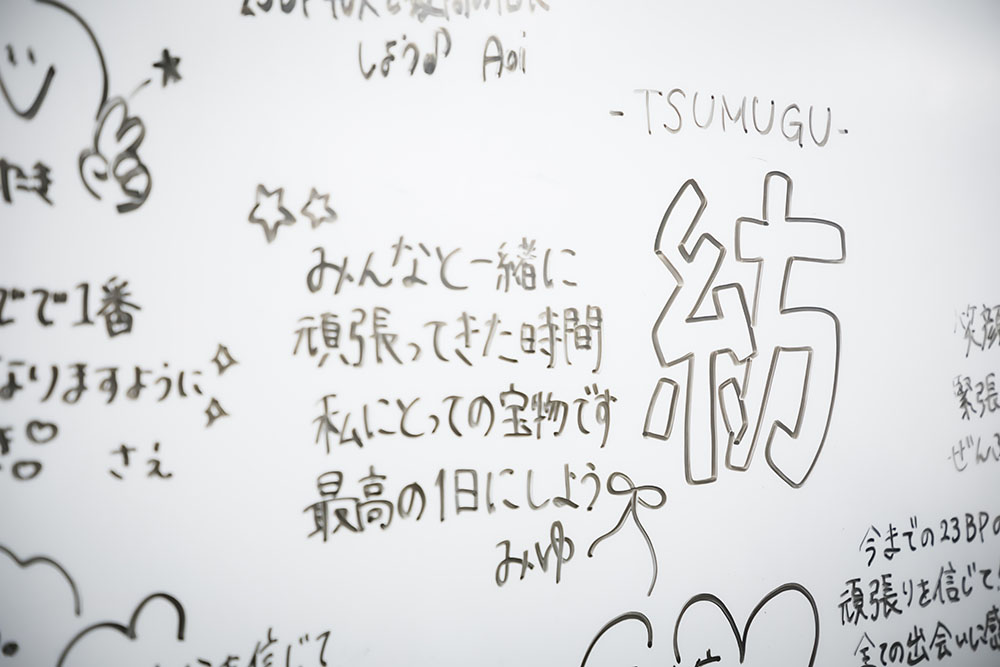 しよう♪ Aoi
-TSUMUGU-
紡
たき
でで1番
なりますように
さえ
みんなと一緒に
頑張ってきた時間
私にとっての宝物です
最高の1日にしよう
みゆ
笑顔
緊張
ぜんぶ
今までの23BPの
頑張りを信じて
全ての出会いに感
を信じて